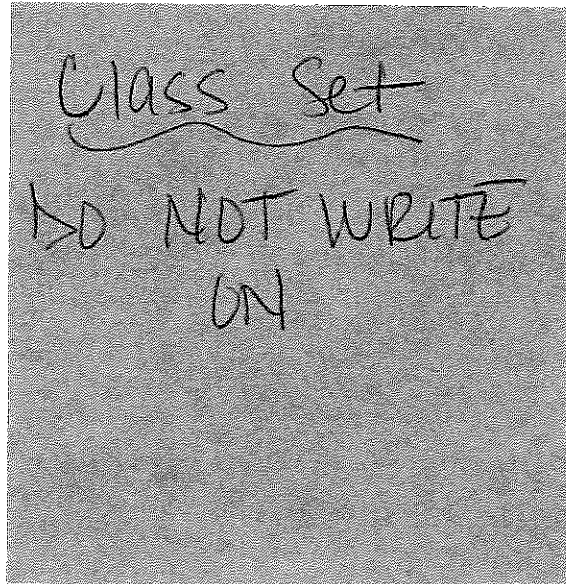 Class Set
DO NOT WRITE
ON